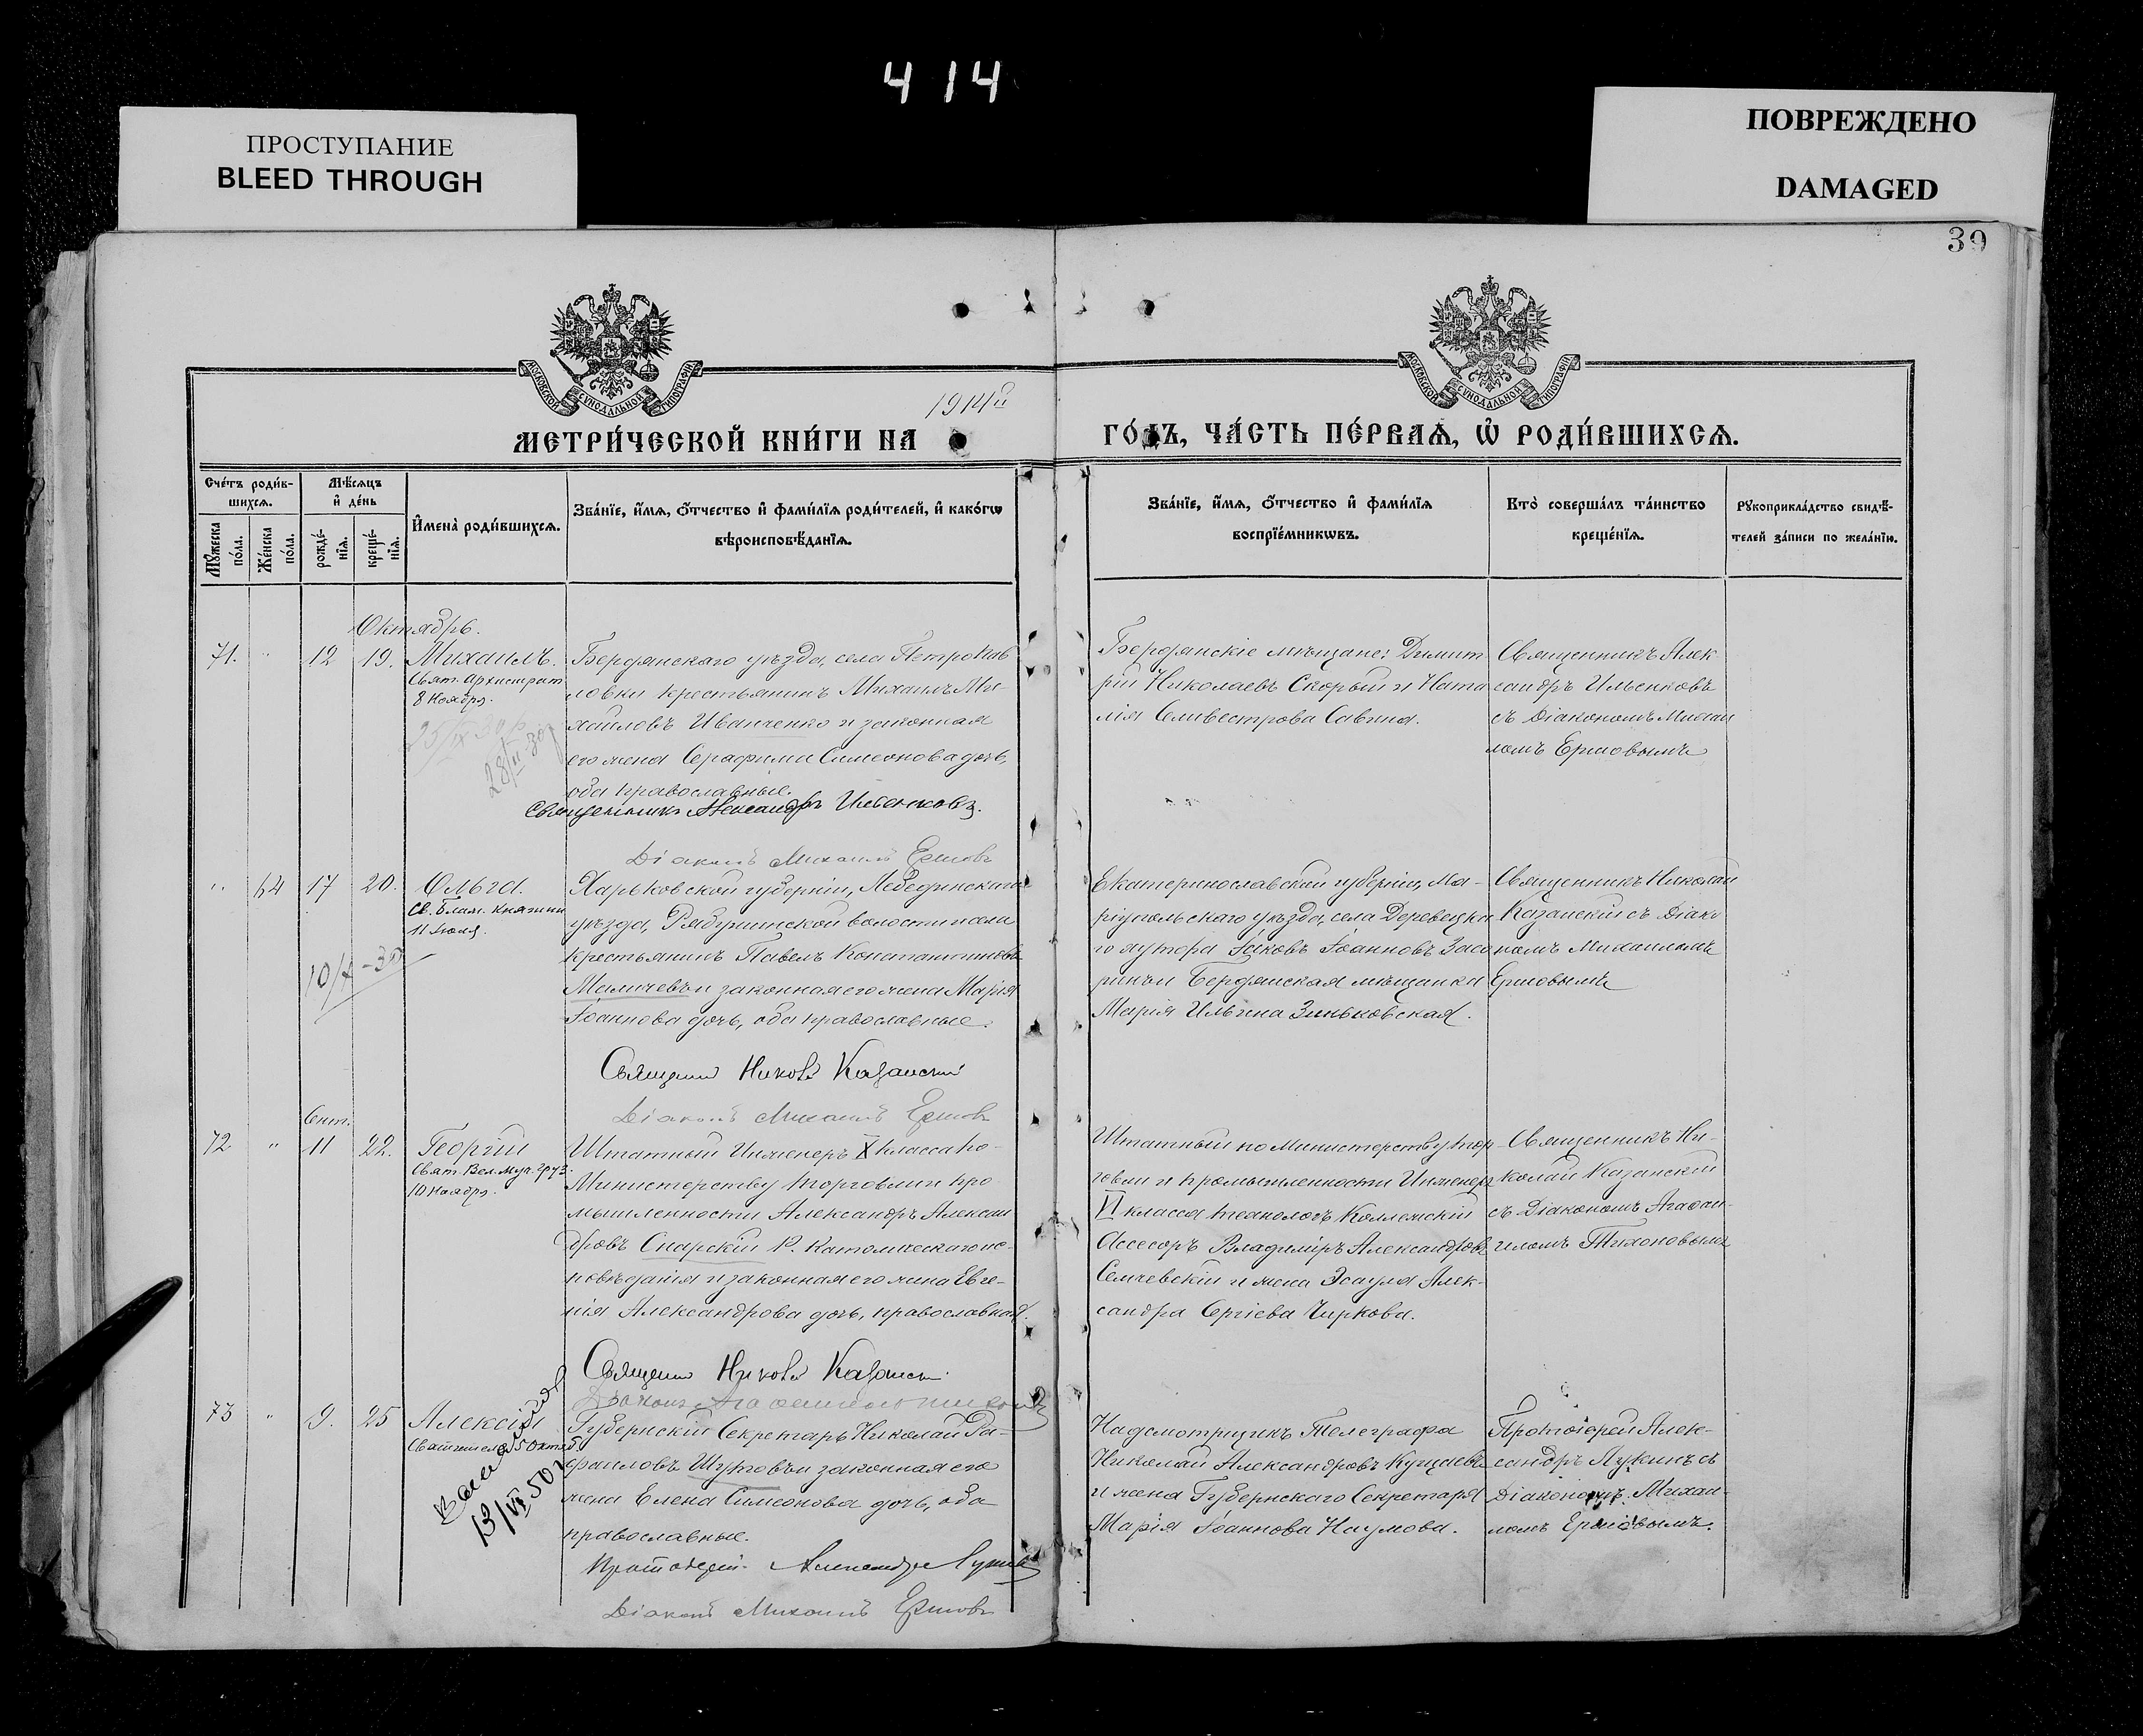 414
ПРОСТУПАНИЕ
BLEED THROUGH
ПОВРЕЖДЕНО
DAMAGED
39
МОСКОВСКОЙ СѴНОДАЛЬНОЙ ТИПОГРАФІИ
МОСКОВСКОЙ СѴНОДАЛЬНОЙ ТИПОГРАФІИ
1914й
МЕТРИ́ЧЕСКОЙ КНИ́ГИ НА
ГО́ДЪ, ЧА́СТЬ ПЕ́РВАѦ, Ѡ҆ РОДИ́ВШИХСѦ.
Сче́тъ роди́в-
шихсѧ.
Мѣ́сѧцъ
и҆ де́нь
Мꙋ́жеска
по́ла.
Же́нска
по́ла.
рожде́-
нїѧ.
креще́-
нїѧ.
И҆мена̀ роди́вшихсѧ.
Зва́нїе, и҆́мѧ, ѻ҆́тчество и҆ фами́лїѧ роди́телей, и҆ како́гѡ
вѣроисповѣ́данїѧ.
Зва́нїе, и҆́мѧ, ѻ҆́тчество и҆ фами́лїѧ
воспрїе́мникѡвъ.
Кто̀ соверша́лъ та́инство
креще́нїѧ.
Рꙋкоприкла́дство свидѣ́-
телей за́писи по жела́нїю.
Октябрь.
71. " 12 19. Михаилъ.
Свят. Архистрат.
8 Ноября.
Бердянскаго уѣзда, села Петропав
ловки крестьянинъ Михаилъ Ми-
хайловъ Иванченко и законная
его жена Серафима Симеонова дочь,
оба православные.
Священникъ Александръ Ильенковъ.
Діаконъ Михаилъ Ершовъ
Бердянскіе мѣщане: Димит
рій Николаевъ Скорый и Ната
лія Селивестрова Савина.
Священникъ Алек
сандръ Ильенковъ
съ Діакономъ Михаи
ломъ Ершовымъ
" 64 17 20. Ольга.
Св. Благ. Княгини
11 Іюля.
10/X-35
Харьковской губерніи, Лебединскаго
уѣзда, Рябушинской волости и села
крестьянинъ Павелъ Константиновъ
и законная его жена Марія
Іоаннова дочь, оба православные.
Священн Никол Казанскій
Діаконъ Михаилъ Ершовъ
Екатеринославской губерніи, Ма-
ріупольскаго уѣзда, села
го хутора Іаковъ Іоанновъ
и Бердянская мѣщанка
Марія Ильина Зиньковская.
Священникъ Николай
Казанскій съ Діако
номъ Михаиломъ
Ершовымъ
Сент.
72 " 11 22. Георгій
Свят. Вел. муч. груз.
10 Ноября.
Штатный Инженеръ X класса по
Министерству торговли и про
мышленности Александръ Алексан
дровъ Снарскій Р. Католическаго ис-
повѣданія и законная его жена Евге-
нія Александрова дочь, православная.
Священн Никол Казанск
Штатный по Министерству тор-
говли и промышленности Инженеръ
VI класса технологъ Коллежскій
Ассесоръ Владиміръ Александровъ
Семчевскій и жена Эсаула Алек-
сандра Сергіева Чиркова.
Священникъ Ни-
колай Казанскій
съ Діакономъ Агафан-
гиломъ Тихоновымъ
73 " 9. 25 Алексій
Святителя 5 Октяб.
13/VI 50 г
Губернскій Секретарь Николай Ра-
фаиловъ Шутовъ и законная его
жена Елена Симеонова дочь, оба
православные.
Протоіерей Александръ Лукинъ
Діаконъ Михаилъ Ершовъ
Надсмотрщикъ Телеграфа
Николай Александровъ Кущаевъ
и жена Губернскаго Секретаря
Марія Іоаннова Наумова.
Протоіерей Алек-
сандръ Лукинъ съ
Діакономъ Михаи-
ломъ Ершовымъ.